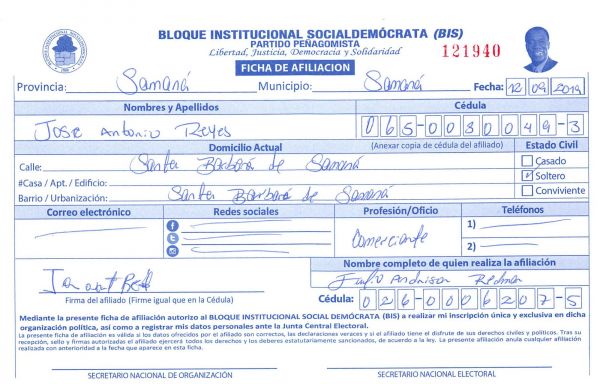 BLOQUE INSTITUCIONAL SOCIALDEMÓCRATA (BIS)
PARTIDO PEÑAGOMISTA
Libertad, Justicia, Democracia y Solidaridad
121940
FICHA DE AFILIACION
Provincia: Samaná Municipio: Samaná Fecha: 12 09 2019
Nombres y Apellidos Cédula
Jose Antonio Reyes 065-0030049-3
Domicilio Actual (Anexar copia de cédula del afiliado) Estado Civil
Calle: Santa Barbara de Samaná Casado
#Casa / Apt. / Edificio: Soltero
Barrio / Urbanización: Santa Barbara de Samaná Conviviente
Correo electrónico Redes sociales Profesión/Oficio Teléfonos
Comerciante 1)
2)
Nombre completo de quien realiza la afiliación
Firma del afiliado (Firme igual que en la Cédula) Cédula: 026-0006207-5
Mediante la presente ficha de afiliación autorizo al BLOQUE INSTITUCIONAL SOCIAL DEMÓCRATA (BIS) a realizar mi inscripción única y exclusiva en dicha
organización política, así como a registrar mis datos personales ante la Junta Central Electoral.
La presente ficha de afiliación es válida si los datos ofrecidos por el afiliado son correctos, las declaraciones veraces y si el afiliado tiene el disfrute de sus derechos civiles y políticos. Tras su
recepción, sello y firmas autorizadas el afiliado ejercerá todos los derechos y los deberes estatutariamente sancionados, de acuerdo a la ley. La presente afiliación anula cualquier afiliación
realizada con anterioridad a la fecha que aparece en esta ficha.
SECRETARIO NACIONAL DE ORGANIZACIÓN SECRETARIO NACIONAL ELECTORAL